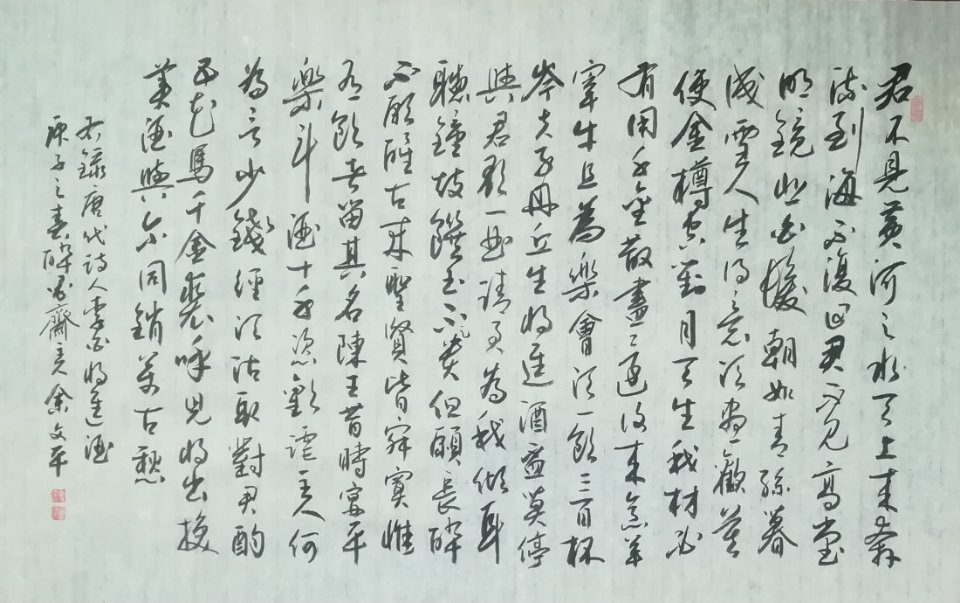 君不見黃河之水天上來奔
流到海不復回君不見高堂
明鏡悲白髮朝如青絲暮
成雪人生得意須盡歡莫
使金樽空對月天生我材必
有用千金散盡還復來烹羊
宰牛且為樂會須一飲三百杯
岑夫子丹丘生將進酒杯莫停
與君歌一曲請君為我傾耳
聽鐘鼓饌玉不足貴但願長醉
不願醒古來聖賢皆寂寞惟
有飲者留其名陳王昔時宴平
樂斗酒十千恣歡謔主人何
為言少錢徑須沽取對君酌
五花馬千金裘呼兒將出換
美酒與爾同銷萬古愁
右錄唐代詩人李白將進酒
庚子之春醉墨齋主余文平